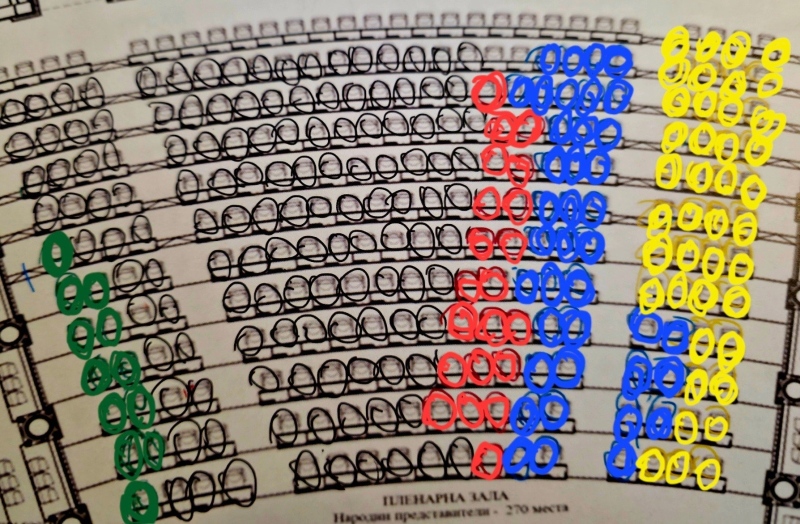 ПЛЕНАРНА ЗАЛА
Народни представители - 270 места